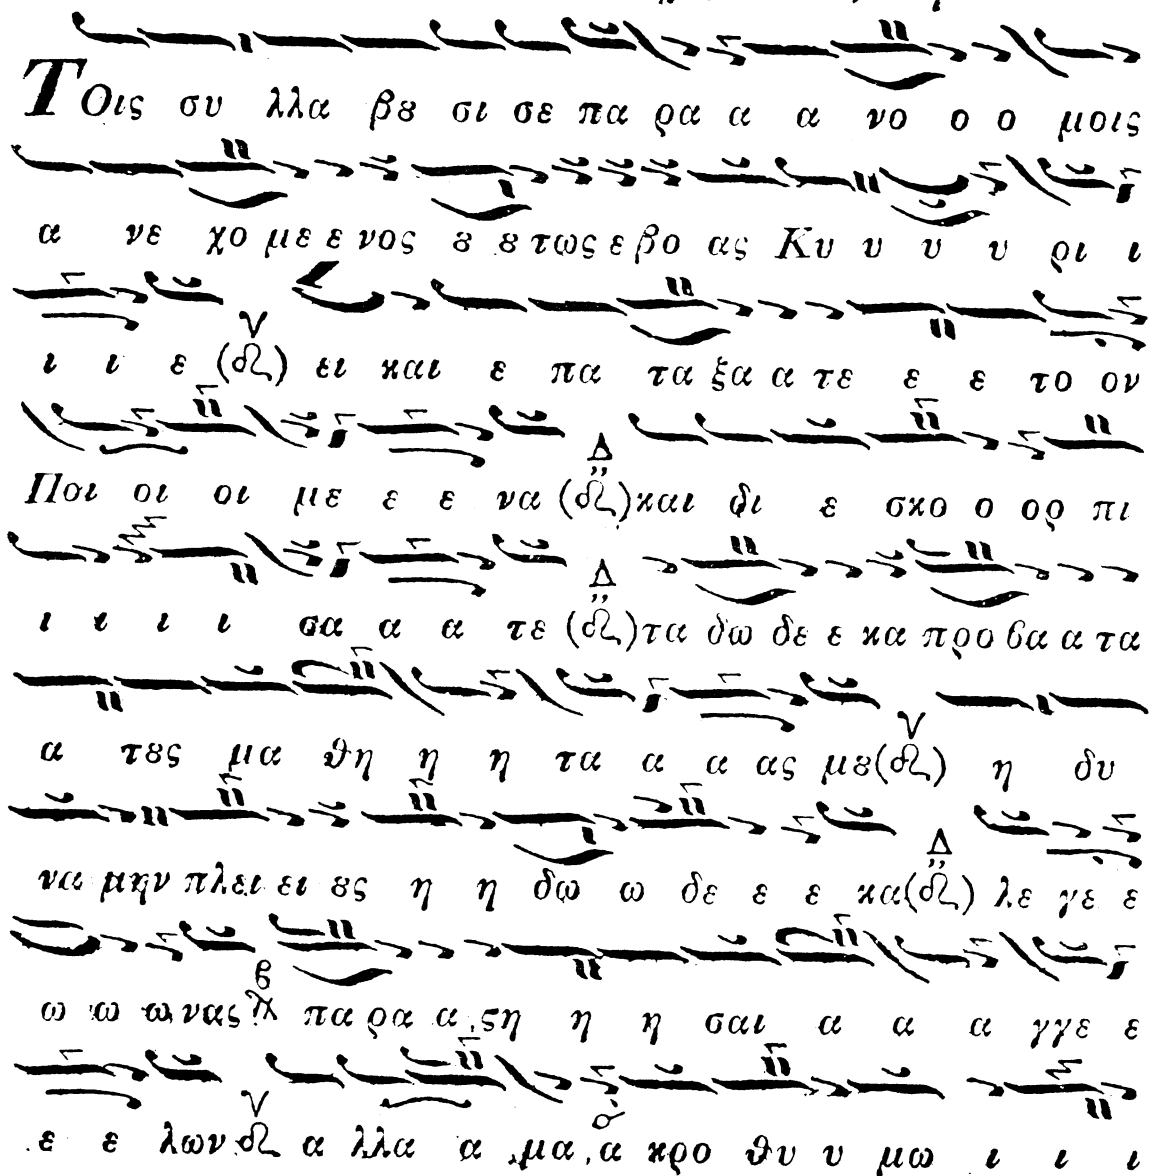 Τοις συ λλα βȣ σι σε πα ρα α α νο ο ο μοις
α νε χο με ε νος ȣ ȣ τως ε βο ας Κυ υ υ υ ρι ι
ι ι ε ει και ε πα τα ξα α τε ε ε το ον
Ποι οι οι με ε ε να και δι ε σκο ο ορ πι
ι ι ι ι σα α α τε τα δω δε ε κα προ βα α τα
α τȣς μα θη η η τα α α ας μȣ η δυ
να μην πλει ει ȣς η η δω ω δε ε ε κα λε γε ε
ω ω ω νας πα ρα α ϛη η η σαι α α α γγε ε
ε ε λων α λλα α μα α κρο θυ υ μω ι ι ι